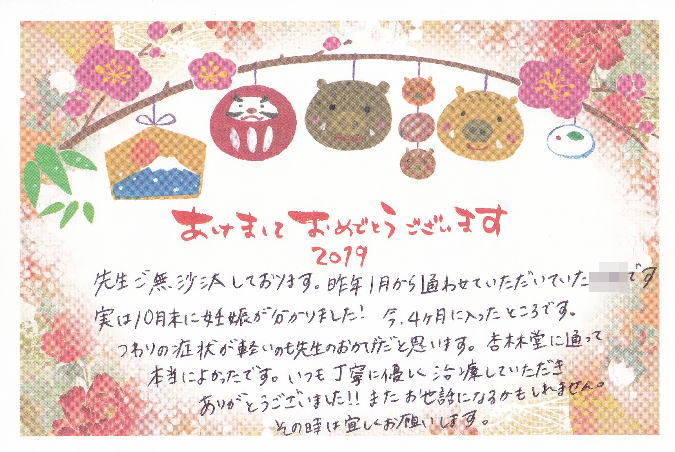 あけまして おめでとうございます
2019
先生ご無沙汰しております。昨年1月から通わせていただいていたです
実は10月末に妊娠が分かりました! 今、4ヶ月に入ったところです。
つわりの症状が軽いのも先生のおかげだと思います。杏林堂に通って
本当によかったです。いつも丁寧に優しく治療していただき
ありがとうございました!! またお世話になるかもしれません。
その時は宜しくお願いします。